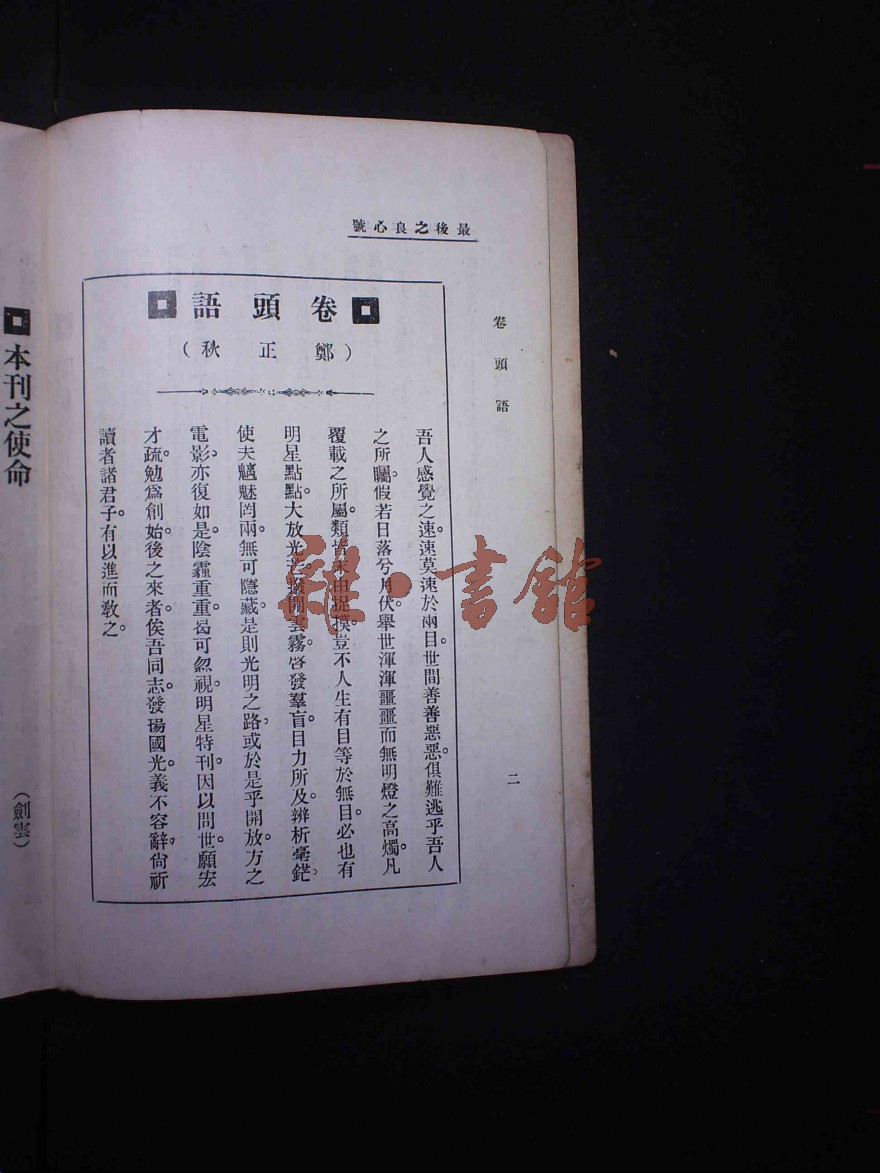 最後之良心號
卷頭語
二
卷頭語
（鄭正秋）
吾人感覺之速。速莫速於兩目。世間善善惡惡。俱難逃乎吾人
之所矚。假若日落兮月伏。舉世渾渾噩噩而無明燈之高燭。凡
覆載之所屬。類皆末由捉摸。豈不人生有目等於無目。必也有
明星點點。大放光芒。撥開雲霧。啓發羣盲。目力所及。辨析毫鋩。
使夫魑魅罔兩。無可隱藏。是則光明之路。或於是乎開放。方之
電影。亦復如是。陰霾重重。曷可忽視。明星特刊。因以問世。願宏
才疏。勉爲創始。後之來者。俟吾同志。發揚國光。義不容辭。尙祈
讀者諸君子。有以進而敎之。
本刊之使命
（劍雲）
雜·書館